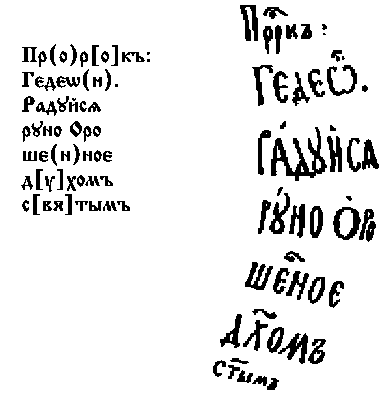 Пр(о)р[о]къ:
Гедеѡ(н).
Радꙋйсѧ
рꙋно Оро
ше(н)ное
д[ү]хомъ
с[вя]тымъ
Пррⷪ҇къ:
Гедеѡⷩ҇.
Ра́дꙋйсѧ
рꙋ́но Ѻро
шеⷩ҇ное
дх҃омъ
ст҃ымъ